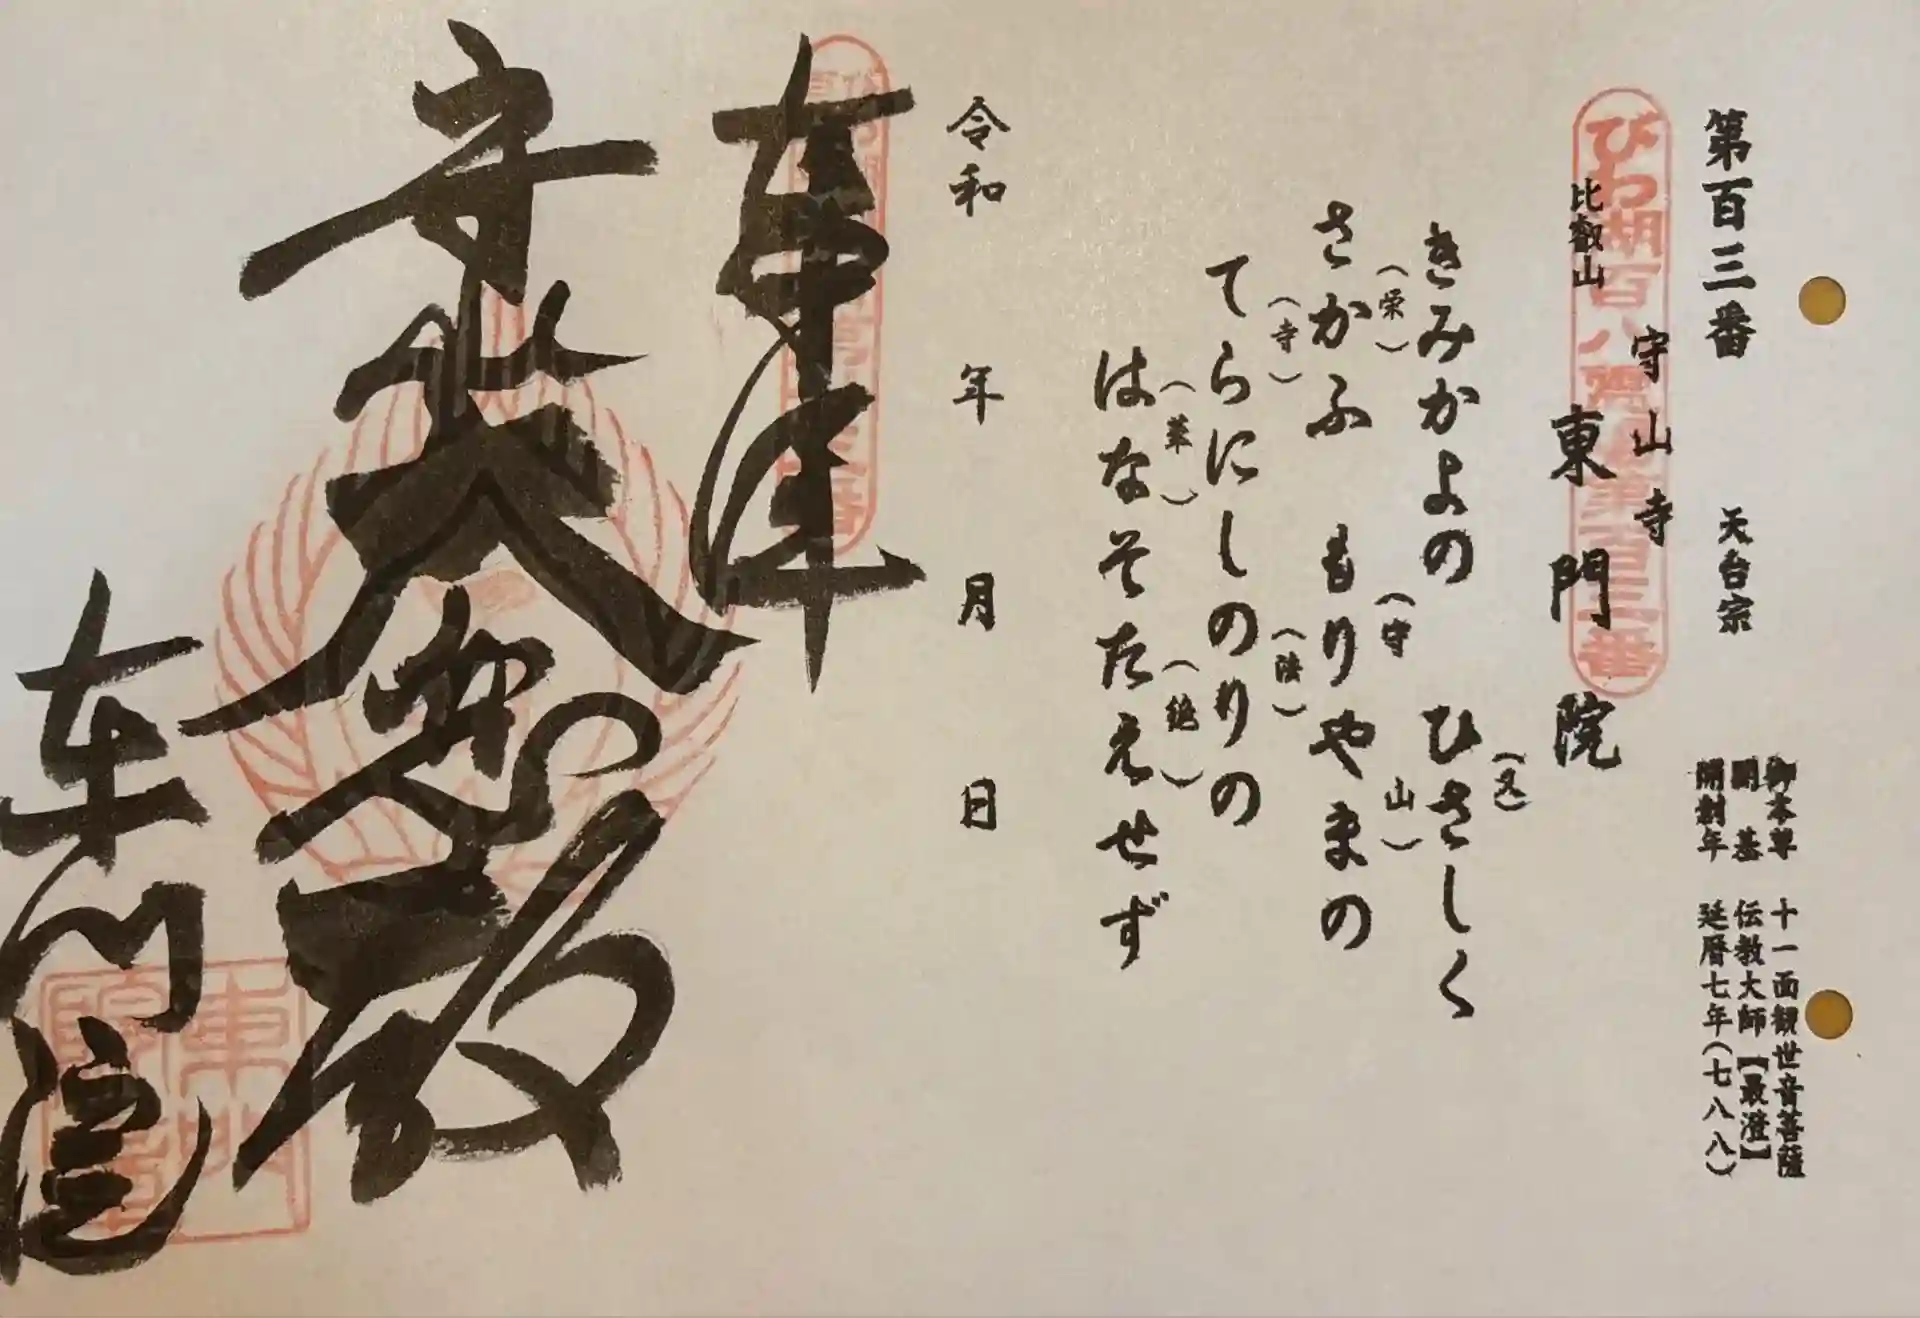 第百三番
天台宗
御本尊 十一面観世音菩薩
開基 伝教大師【最澄】
開創年 延暦七年(七八八)
びわ湖百八霊場第百三番
比叡山
守山寺
東門院
きみかよの ひさしく
(久)
さかふ もりやまの
(栄) (守) (山)
てらにしのりの
(寺) (法)
はなそたえせず
(華) (絶)
令和 年 月 日
奉拝
東門院
東門